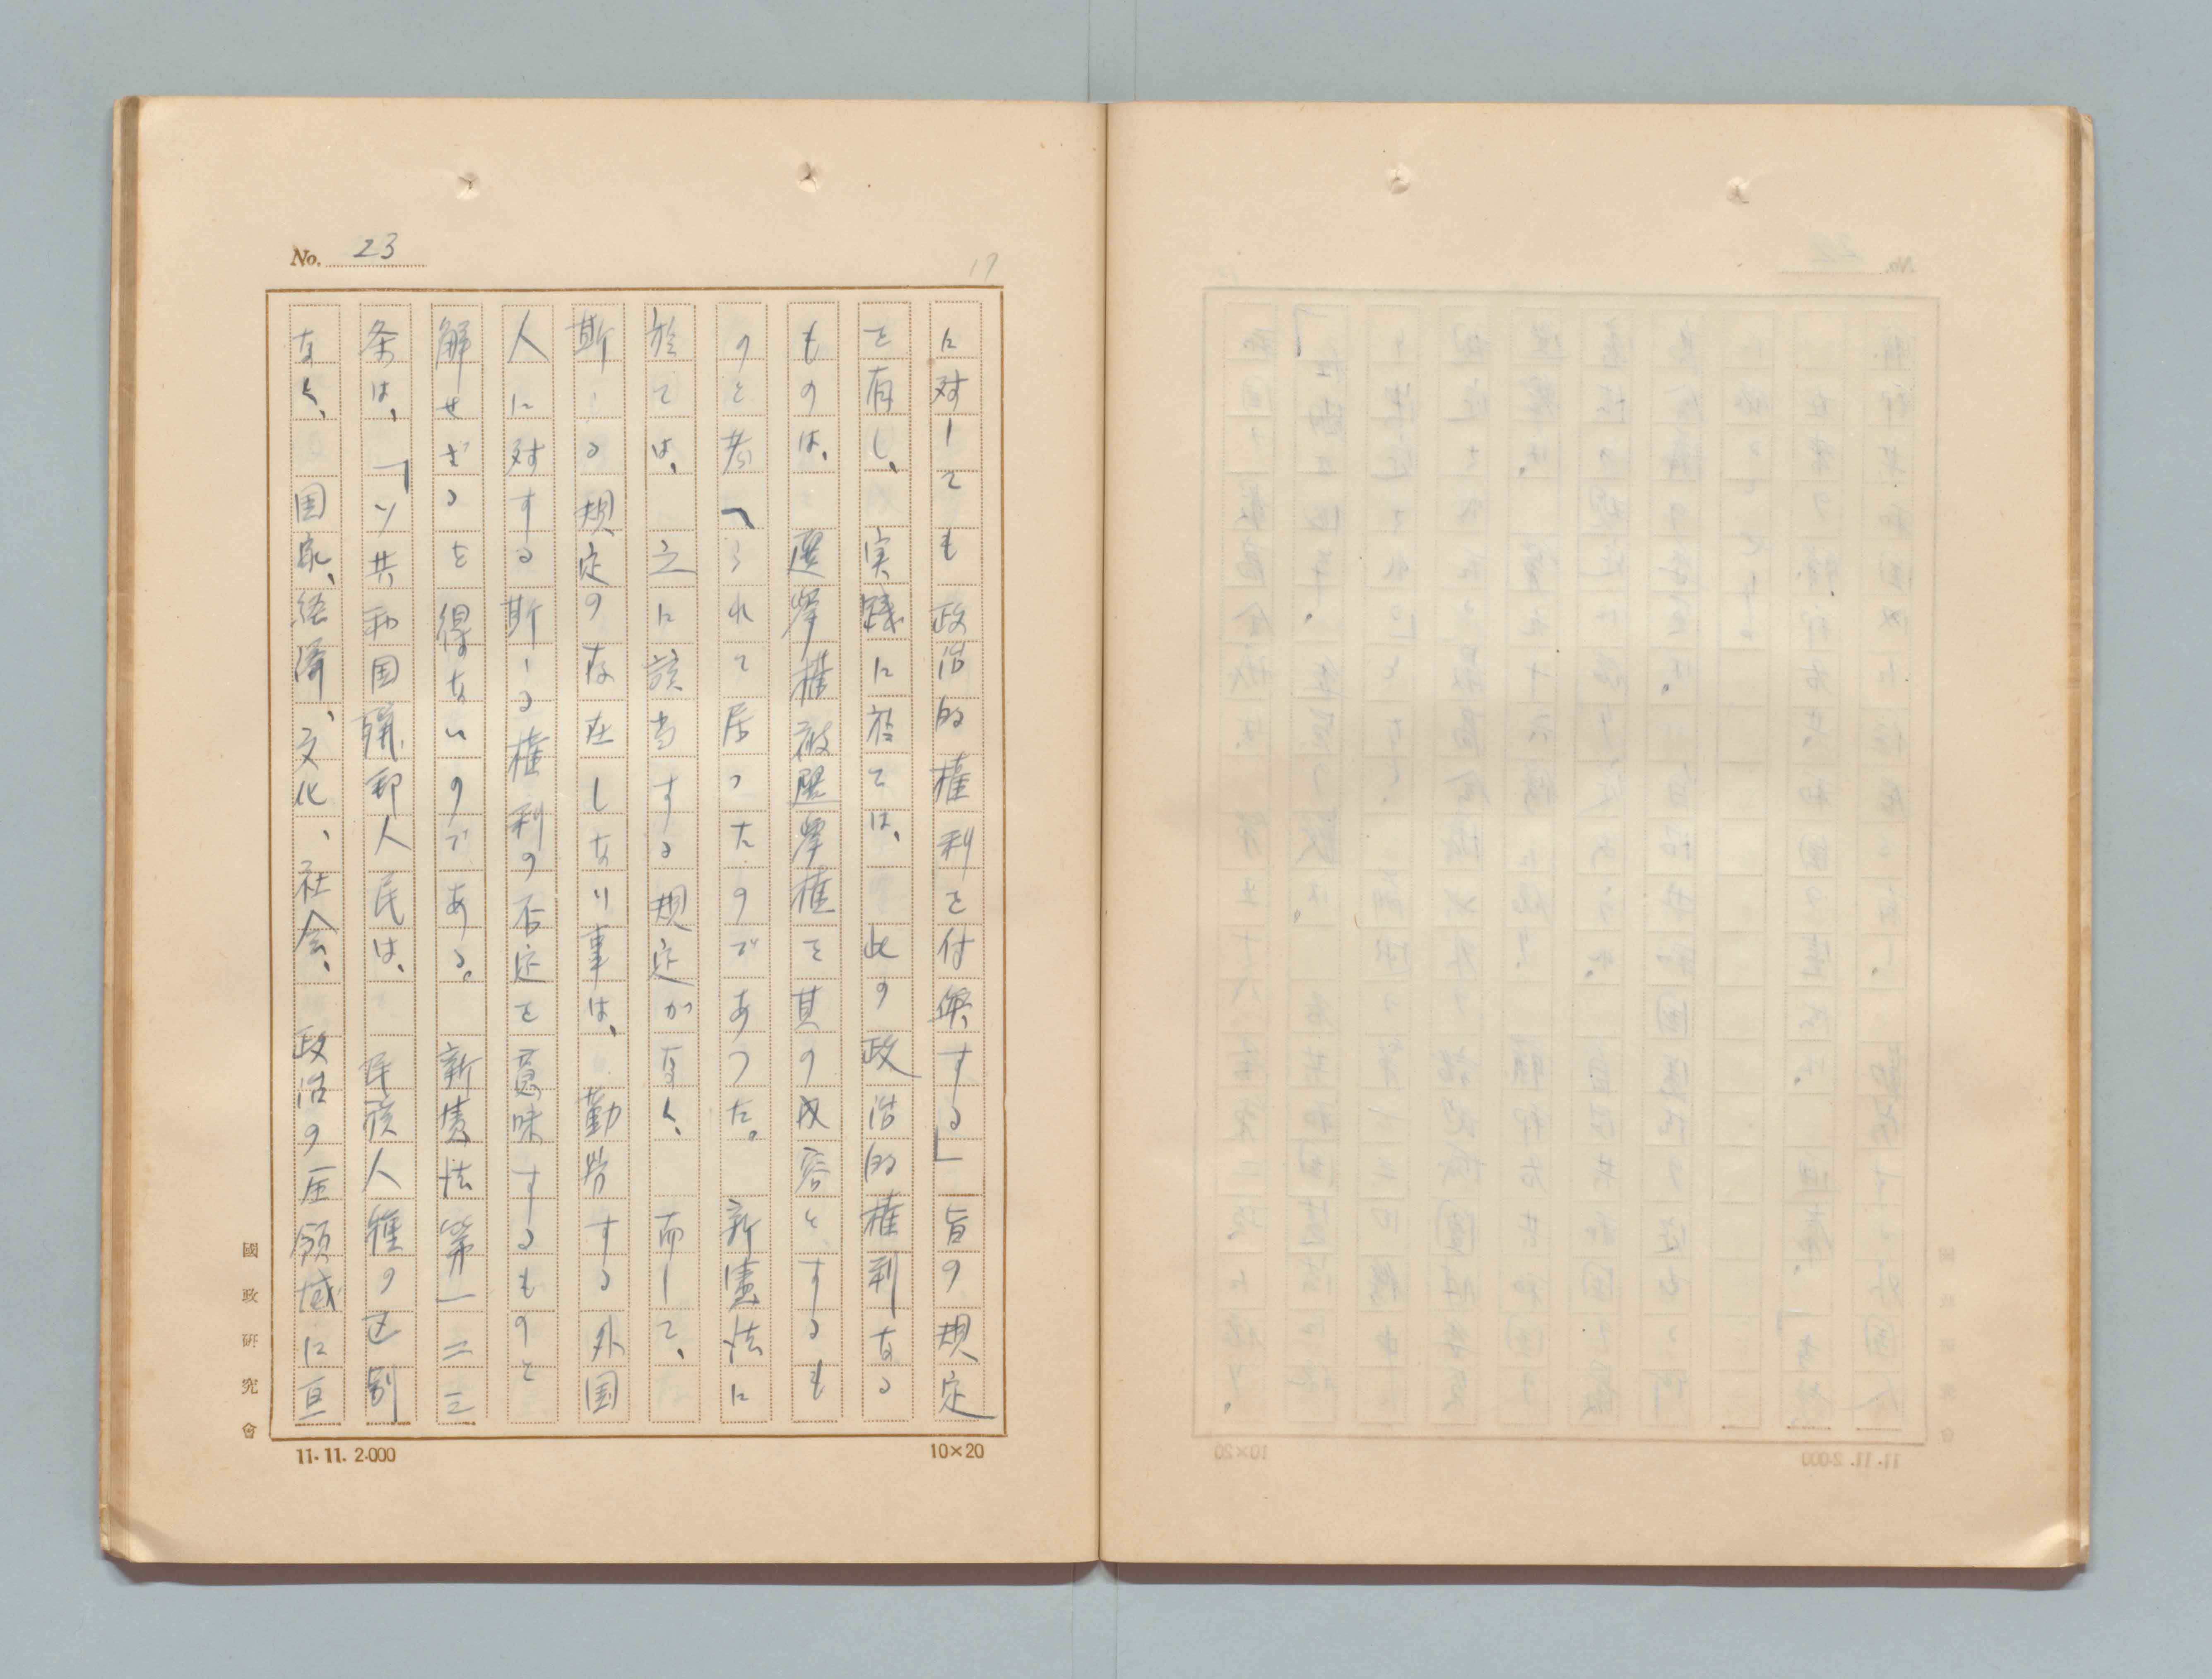 No. 23
17
に対しても政治的権利を付与する」旨の規定
を有し、実践に於ては、此の政治的権利なる
ものは、選挙権被選挙権を其の内容とするも
のと考へられて居つたのであつた。新憲法に
於ては、之に該当する規定がなく、而して、
斯ゝる規定の存在しなり事は、勤労する外国
人に対する斯ゝる権利の否定を意味するものと
解せざるを得ないのである。新憲法第一二三
条は、「ソ共和国聯邦人民は、民族人種の区別
なく、国家、経済、文化、社会、政治の全領域に亘
國政研究會
11.11.2.000
10×20